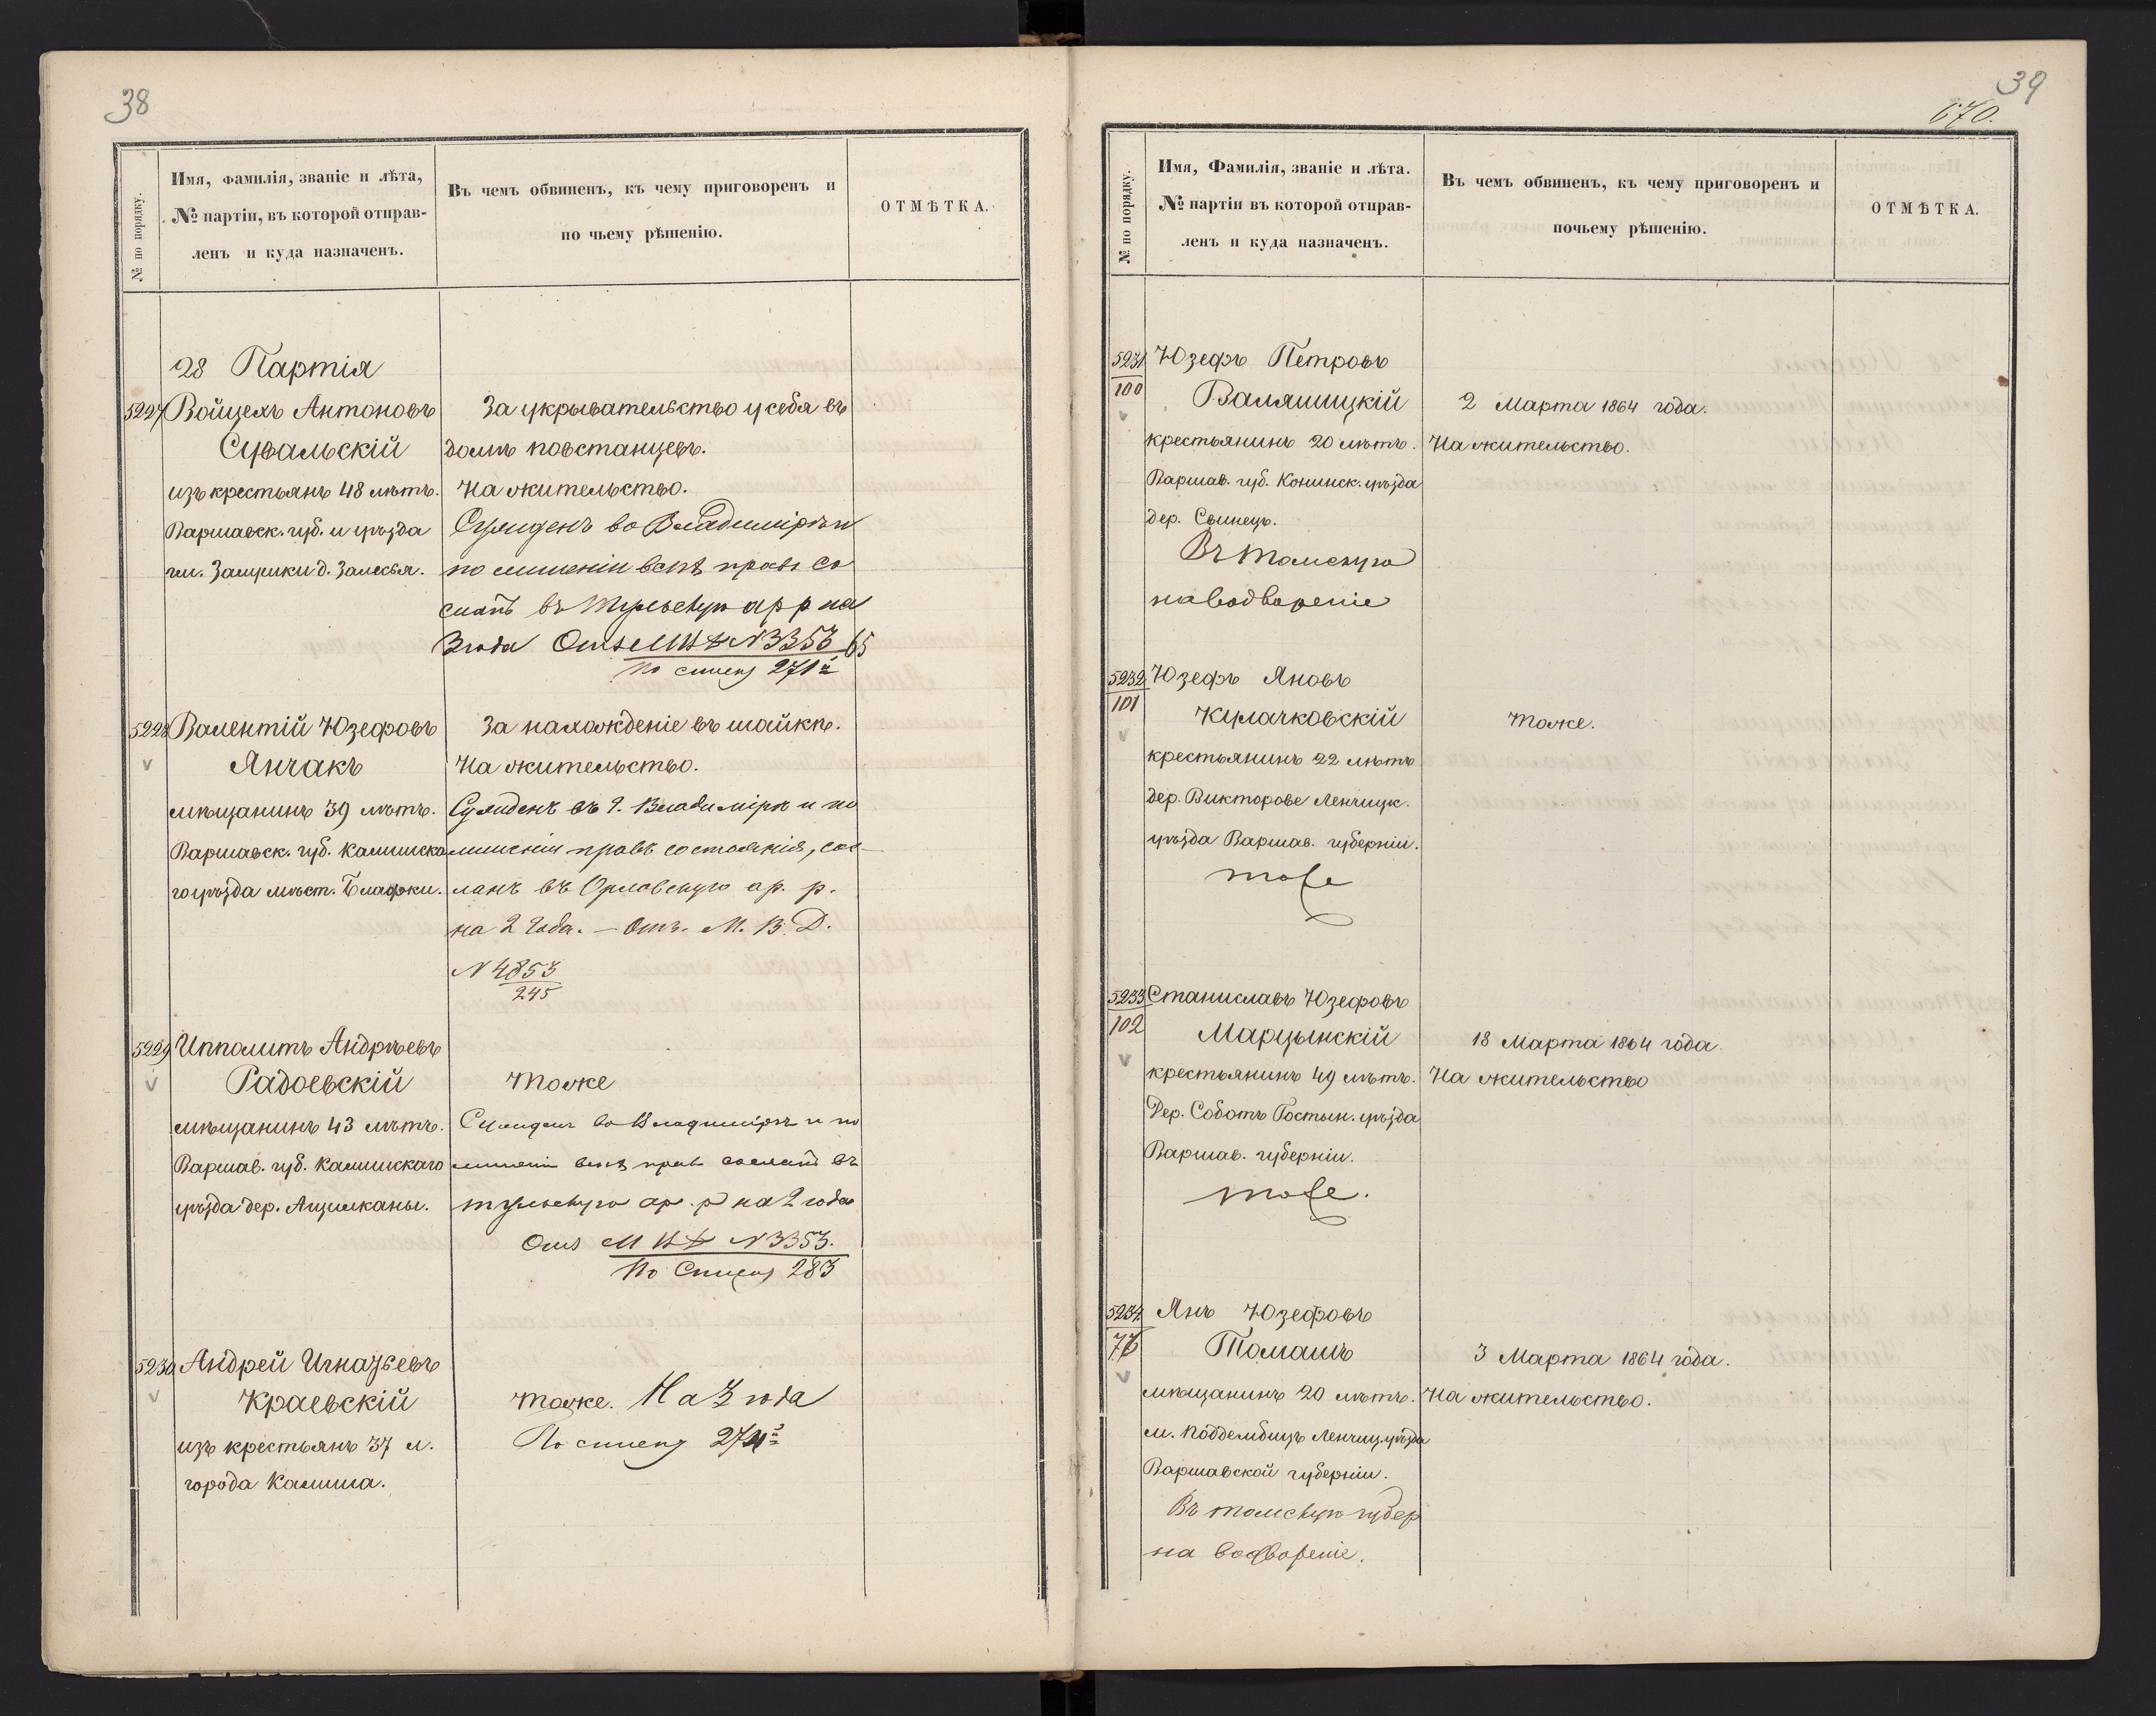 38
№ по порядку.
Имя, фамилія, званіе и лѣта,
№ партіи, въ которой отправ-
ленъ и куда назначенъ.
Въ чемъ обвиненъ, къ чему приговоренъ и
по чьему рѣшенію.
ОТМѢТКА.
28 Партія
5227 Войцехъ Антоновъ
Сувальскій
изъ крестьянъ 48 лѣтъ.
Варшавск. губ. и уѣзда
гм. Замушки д. Залесья.
За укрывательство у себя въ
домѣ повстанцевъ.
На жительство.
Сужденъ во Владимірѣ и
по лишеніи всѣхъ правъ со
сланъ въ Тульскую ар р на
3 года Отз МВД N 3353 65
По списку 271й
5228 Валентій Юзефовъ
Янчакъ
мѣщанинъ 39 лѣтъ.
Варшавск. губ. Калишска
го уѣзда мѣст. Блафки.
За нахожденіе въ шайкѣ.
На жительство.
Сужденъ въ г. Владимірѣ и по
лишеніи правъ состоянія, сос-
ланъ въ Орловскую ар. р.
на 2 года. – Отз. М. В. Д.
N 4853
245
5229 Ипполитъ Андрѣевъ
Радоевскій
мѣщанинъ 43 лѣтъ.
Варшав. губ. Калишскаго
уѣзда дер. Ацижканы.
Тоже
Сужденъ во Владимірѣ и по
лишеніи всѣхъ правъ сосланъ въ
тульскую ар. р на 2 года
Отз М В Д N 3353.
По Списку 283
5230 Андрей Игнатьевъ
Краевскій
изъ крестьянъ 37 л.
города Калиша.
Тоже. На 3 года
По списку 274й
39
670.
№ по порядку.
Имя, Фамилія, званіе и лѣта.
№ партіи въ которой отправ-
ленъ и куда назначенъ.
Въ чемъ обвиненъ, къ чему приговоренъ и
почьему рѣшенію.
ОТМѢТКА.
5231 Юзефъ Петровъ
100 Валяшицкій
крестьянинъ 20 лѣтъ.
Варшав. губ. Конинск. уѣзда
дер. Свинецъ.
Въ Томскую
на водвореніе
2 Марта 1864 года.
На жительство.
5232 Юзефъ Яновъ
101 Кулачковскій
крестьянинъ 22 лѣтъ
дер. Викторове Ленчицк.
уѣзда Варшав. губерніи.
тоже
Тоже.
5233 Станиславъ Юзефовъ
102 Марцынскій
крестьянинъ 49 лѣтъ.
Дер. Соботъ Гостын. уѣзда
Варшав. губерніи.
тоже.
18 Марта 1864 года.
На жительство
5234 Янъ Юзефовъ
76 Томашъ
мѣщанинъ 20 лѣтъ.
м. Поддембицъ Ленчиц. уѣзда
Варшавской губерніи.
Въ томскую губер
на водвореніе.
3 Марта 1864 года.
На жительство.